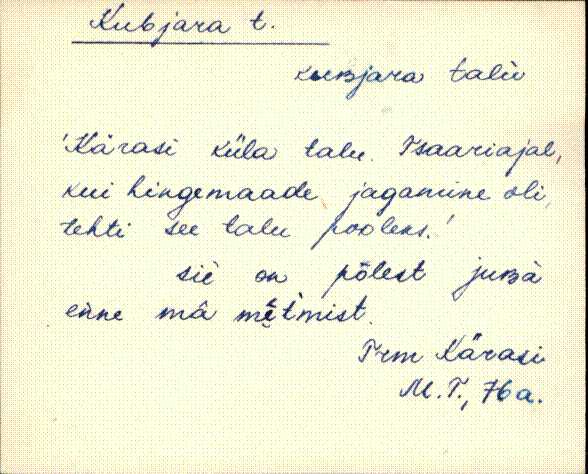 Kubjara t.
kuʙjara talù
'Kärasi küla talu. Tsaariajal,
kui hingemaade jagamine oli,
tehti see talu pooleks.'
siè on põlest juʙà
enne mā mèt́mist.
Trm Kärasi
M.T., 76 a.